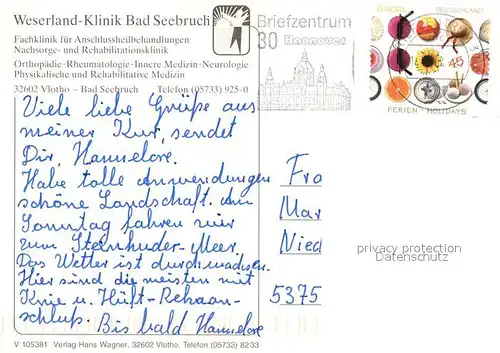 Weserland-Klinik Bad Seebruch
Fachklinik für Anschlussheilbehandlungen
Nachsorge- und Rehabilitationsklinik
Orthopädie-Rheumatologie-Innere Medizin-Neurologie
Physikalische und Rehabilitative Medizin
32602 Vlotho – Bad Seebruch Telefon (05733) 925-0
Briefzentrum
30 Hannover
EUROPA DEUTSCHLAND
45
FERIEN - HOLIDAYS
Viele liebe Grüße aus
meiner Kur, sendet
Dir, Hannelore.
Habe tolle Anwendungen
schöne Landschaft. Am
Sonntag fahren wir
zum Steinhuder-Meer.
Das Wetter ist durchwachsen.
Hier sind die meisten mit
Knie u. Hüft-Rehaan-
schluß. Bis bald Hannelore
Fra
Mar
Nied
5375
privacy protection
Datenschutz
V 105381 Verlag-Hans Wagner, 32602 Vlotho. Tel. (05733) 82 33